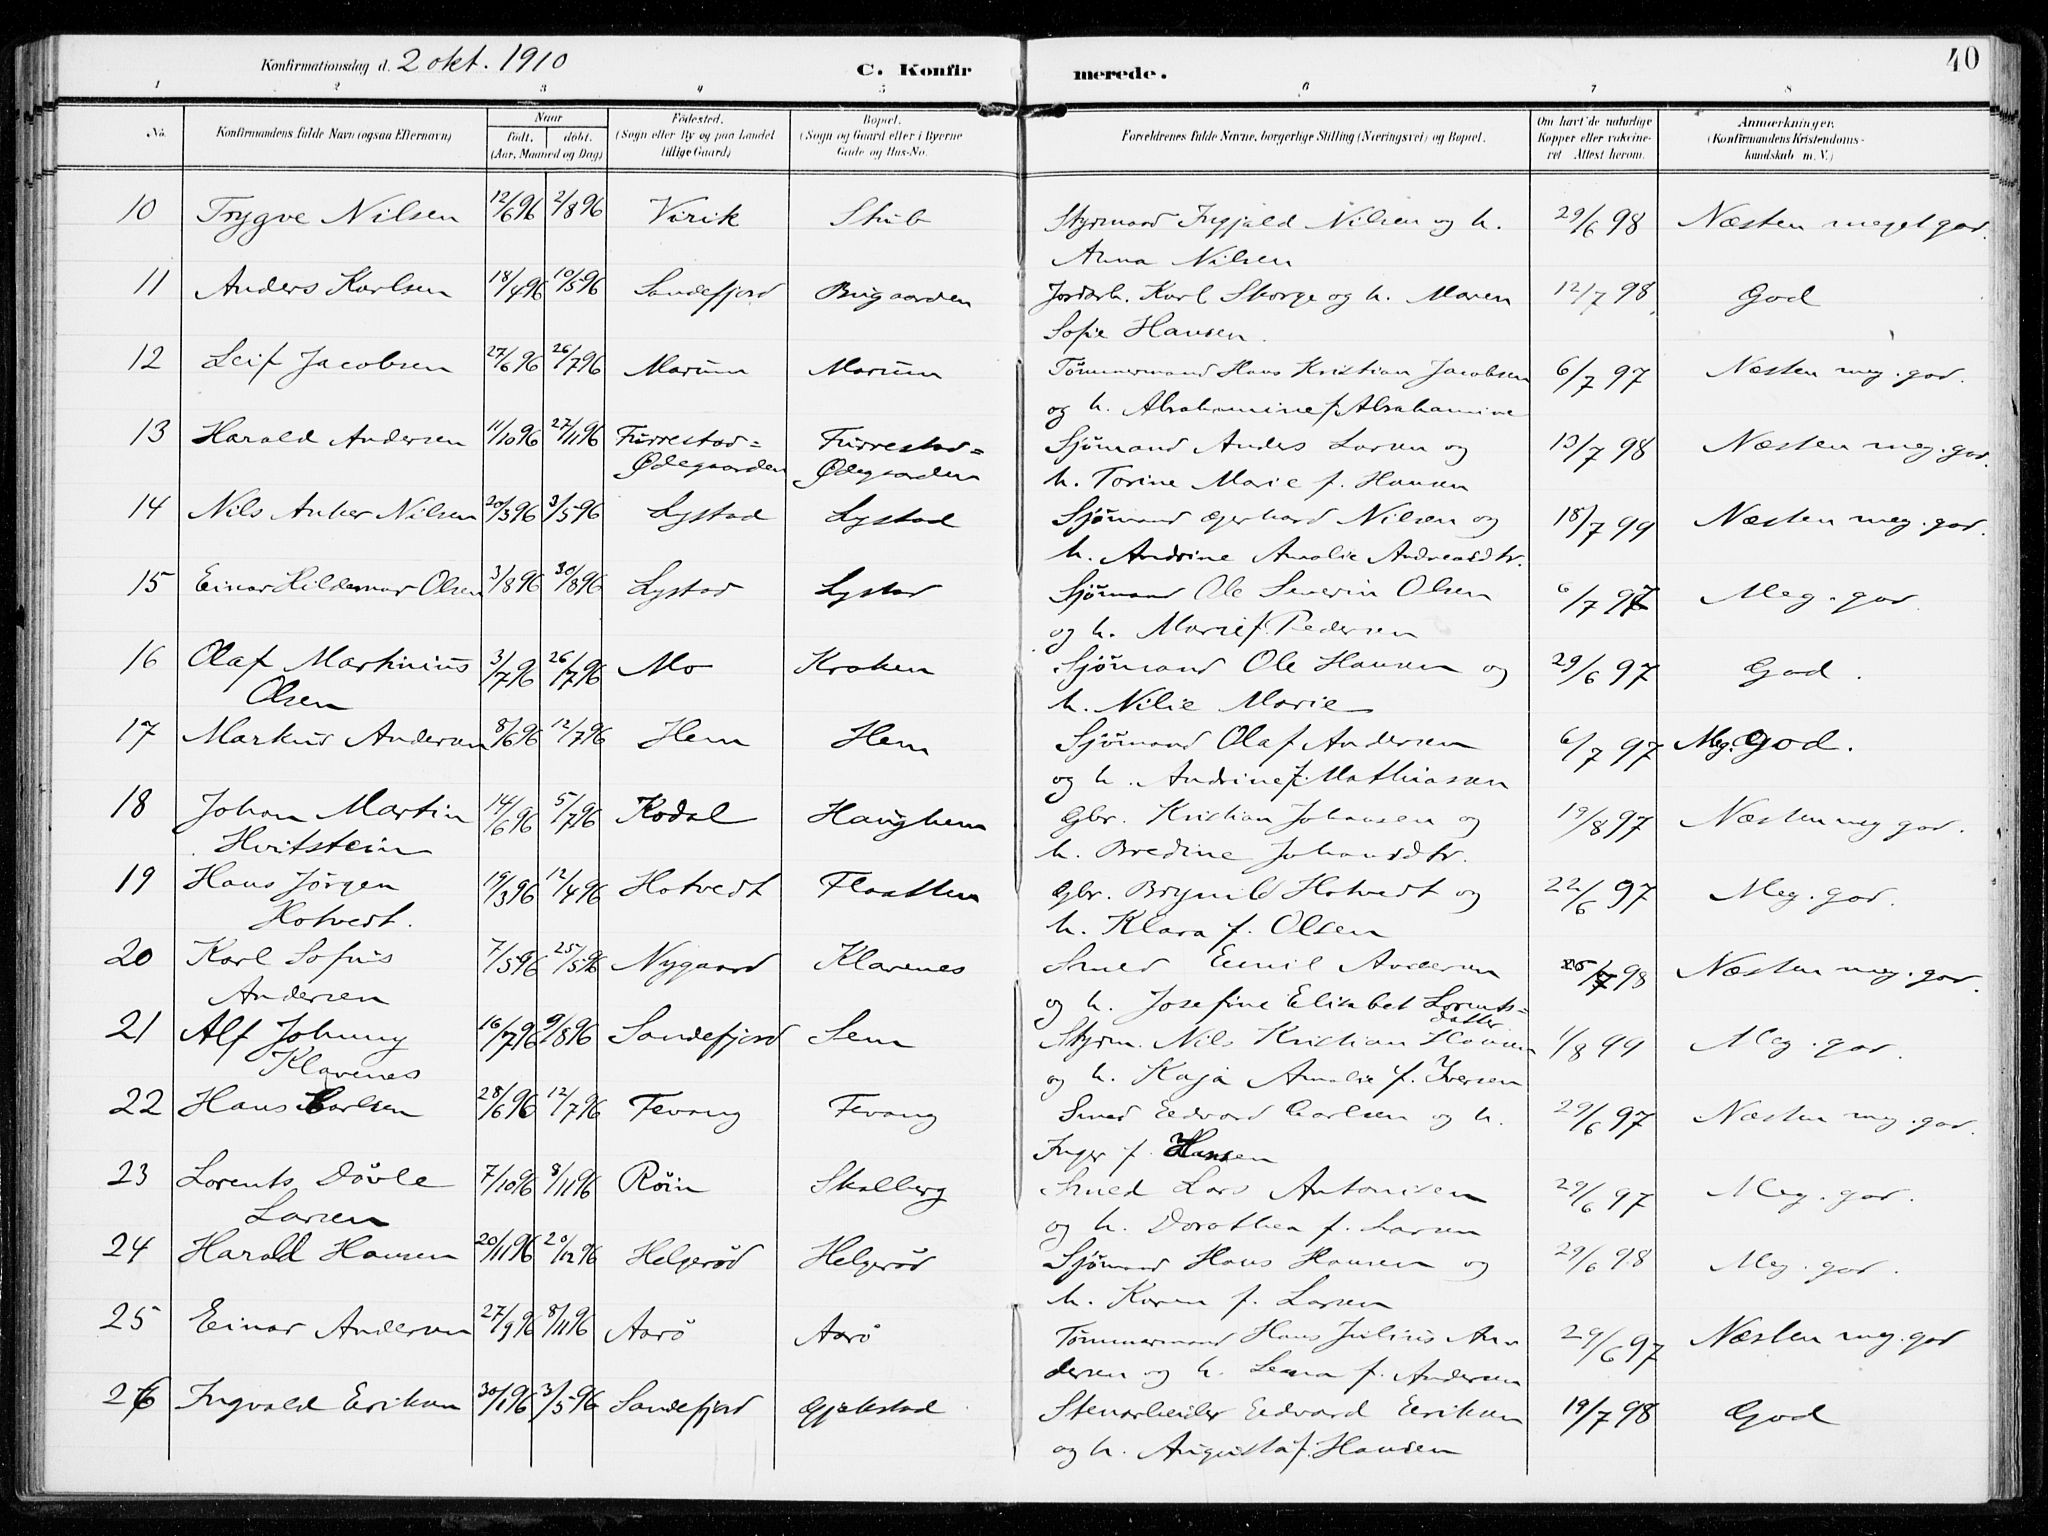 Konfirmationsdag d. 2 okt. 1910 C. Konfirmerede. 40
1 2 3 4 5 6 7 8
No. Konfirmandens fulde Navn (ogsaa Efternavn) Naar født. døbt. (Aar, Maaned og Dag) Fødested. (Sogn eller By og paa Landet tillige Gaard) Bopæl. (Sogn og Gaard eller i Byerne Gade og Hus-No. Forældrenes fulde Navne, borgerlige Stilling (Næringsvei) og Bopæl. Om havt de naturlige Kopper eller vakcineret Attest herom. Anmærkninger. (Konfirmandens Kristendomskundskab m. V.)
10 Trygve Nilsen 12/6 96 2/8 96 Virik Stub Styrmand Ingjald Nilsen og h. 29/6 98 Næsten meget god.
Anna Nilsen
11 Anders Karlsen 18/4 96 10/5 96 Sandefjord Bugaarden Jordarb. Karl Skorge og h. Maren 12/7 98 God
Sofie Hansen.
12 Leif Jacobsen 27/6 96 26/7 96 Marum Marum Tømmermand Hans Kristian Jacobsen 6/7 97 Næsten meg. god.
og h. Abrahamine f. Abrahamine
13 Harald Andersen 11/10 96 27/11 96 Furrestad= Furrestad= Sjømand Anders Larsen og 13/7 98 Næsten meg. god.
Ødegaarden Ødegaarden h. Torine Marie f. Hansen
14 Nils Anker Nilsen 20/3 96 3/5 96 Lystad Lystad Sjømand Gerhard Nilsen og 18/7 99 Næsten meg. god.
h. Andrine Amalie Andreasdtr.
15 Einar Hildemar Olsen 3/8 96 30/8 96 Lystad Lystad Sjømand Ole Severin Olsen 6/7 97 Meg. god
og h. Marie f. Pedersen
16 Olaf Martinius 3/7 96 26/7 96 Mo Kroken Sjømand Ole Hansen og 29/6 97 God.
Olsen h. Nilie Marie
17 Markus Andersen 8/6 96 12/7 96 Hem Hem Sjømand Olaf Andersen 6/7 97 Meg. god.
og h. Andrine f. Mathiasen
18 Johan Martin 14/6 96 5/7 96 Kodal Haughem Gbr. Kristian Johansen og 19/8 97 Næsten meg god.
Hvitstein h. Bredine Johansdtr.
19 Hans Jørgen 19/3 96 12/4 96 Hotvedt Flaatten Gbr. Brynild Hotvedt og 22/6 97 Meg. god.
Hotvedt. h. Klara f. Olsen
20 Karl Sofus 7/5 96 25/5 96 Nygaard Klavenes Smed Emil Andersen 98 Næsten meg. god.
Andersen og h. Josefine Elisabet Lorents=
datter
21 Alf Johnny 16/7 96 9/8 96 Sandefjord Sem Styrm. Nils Kristian Hansen 1/8 99 Meg. god.
Klavenes og h. Kaja Amalie f. Iversen
22 Hans Carlsen 28/6 96 12/7 96 Fevang Fevang Smed Edvard Carlsen og h. 29/6 97 Næsten meg. god.
Inger f. Hansen
23 Lorents Døvle 7/10 96 8/11 96 Røin Skalberg Smed Lars Antonisen 29/6 97 Meg. god.
Larsen og h. Dorothea f. Larsen
24 Harald Hansen 20/11 96 20/12 96 Helgerød Helgerød Sjømand Hans Hansen og 29/6 98 Meg. god.
h. Karen f. Larsen
25 Einar Andersen 27/9 96 8/11 96 Aarø Aarø Tømmermand Hans Julius An- 29/6 97 Næsten meg. god
dersen og h. Lena f. Andersen
26 Ingvald Eriksen 30/1 96 3/5 96 Sandefjord Gjekstad Stenarbeider Edvard Eriksen 19/7 98 God
og h. Augusta f. Hansen